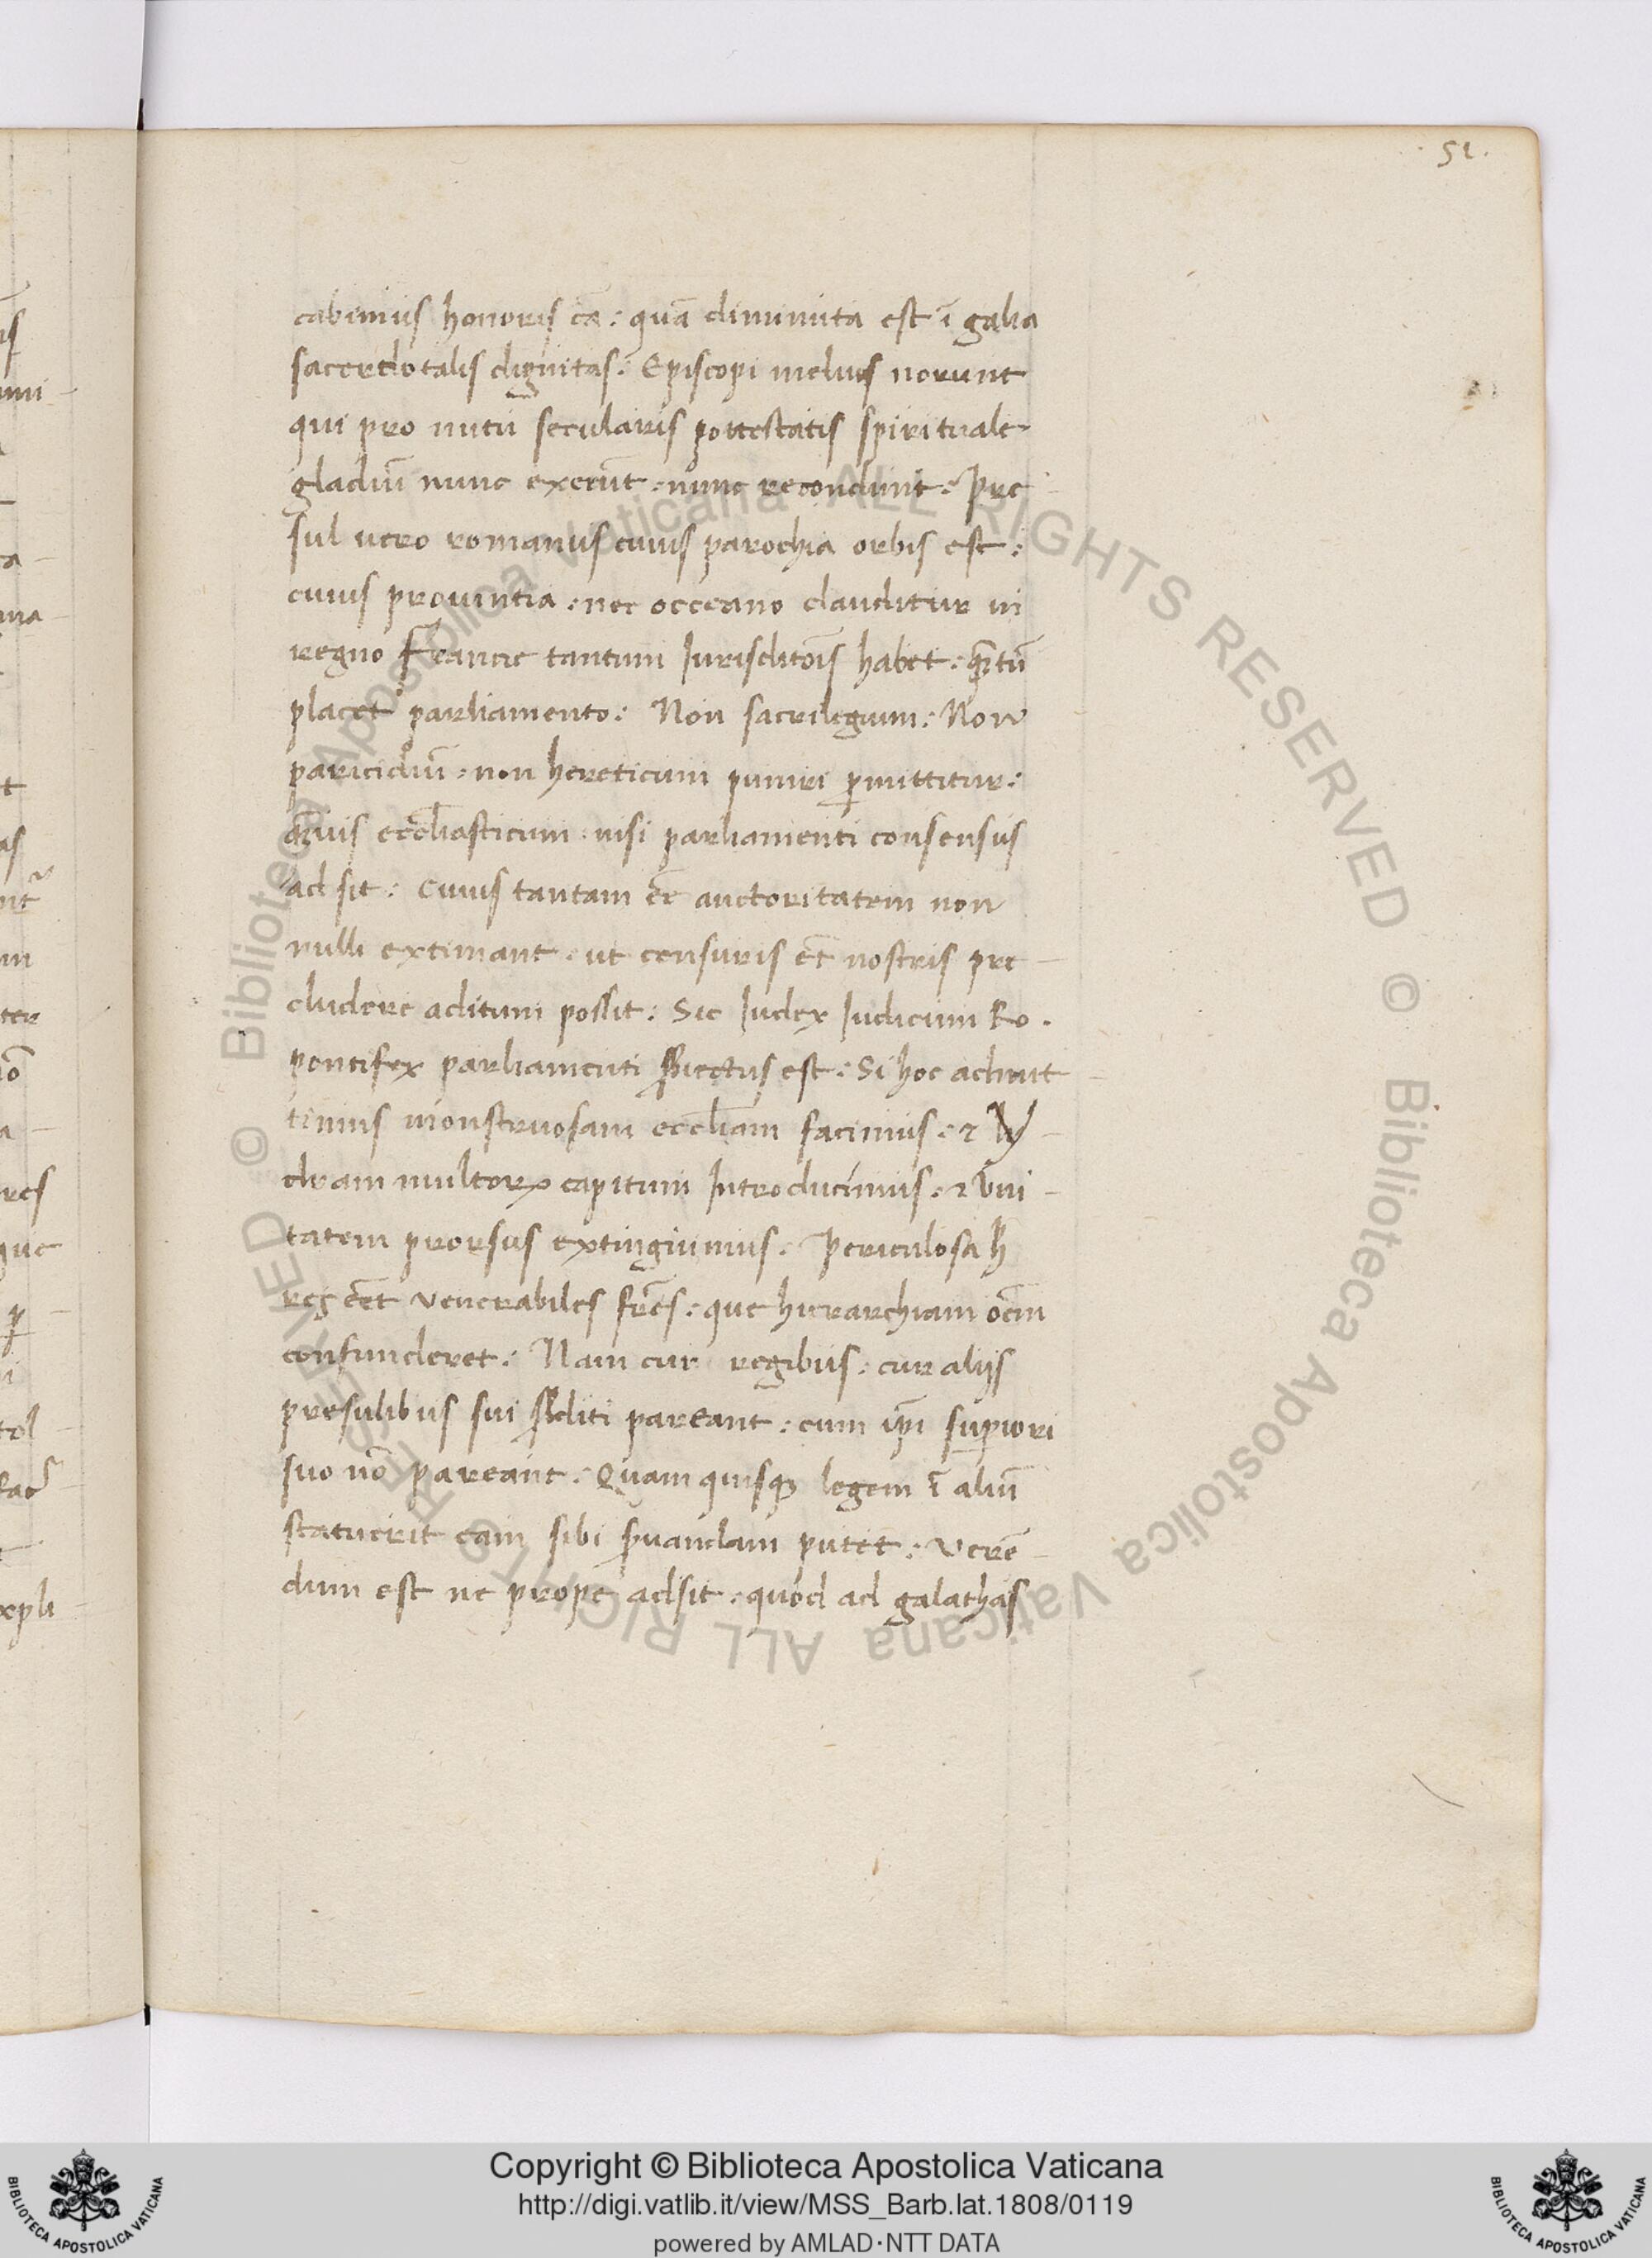 51.
cabimus honoris cā: quā diminuta est ī galia
sacerdotalis dignitas: Episcopi melius norunt
qui pro nutu secularis potestatis spirituale
gladiū nunc exerūt. nunc recondunt. Pre
sul uero romanus cuius parochia orbis est:
cuius prouintia. nec occeano clauditur in
regno Francie tantum Jurisditōis habet. quātū
placet parliamento: Non sacrilegium: Non
paricidiū. non hereticum puniri ꝑmittitur:
quāuis eccl̄iasticum. nisi parliamenti consensus
ad sit: Cuius tantam eē auctoritatem non
nulli extimant. ut censuris et̄ nostris pre
cludere aditum possit: Sic Judex Judicum Ro.
pontifex parliamenti sb̄iectus est: Si hoc admit
timus monstruosam eccl̄iam facimus. ⁊ hy
dram multorꝝ capitum Introducimus. ⁊ vni
tatem prorsus extingiumus. Periculosa h̄
res eēt venerabiles fr̄es: que hierarchiam oēm
confunderet: Nam cur regibus. cur alijs
presulibus sui sb̄diti pareant: cum ip̄i suꝑiori
suo nō pareant. Quam quisqꝫ legem ī aliū
statuerit eam sibi ẜuandam putet: Verē
dum est ne prope adsit. quod ad galathas
Copyright © Biblioteca Apostolica Vaticana
http://digi.vatlib.it/view/MSS_Barb.lat.1808/0119
powered by AMLAD·NTT DATA